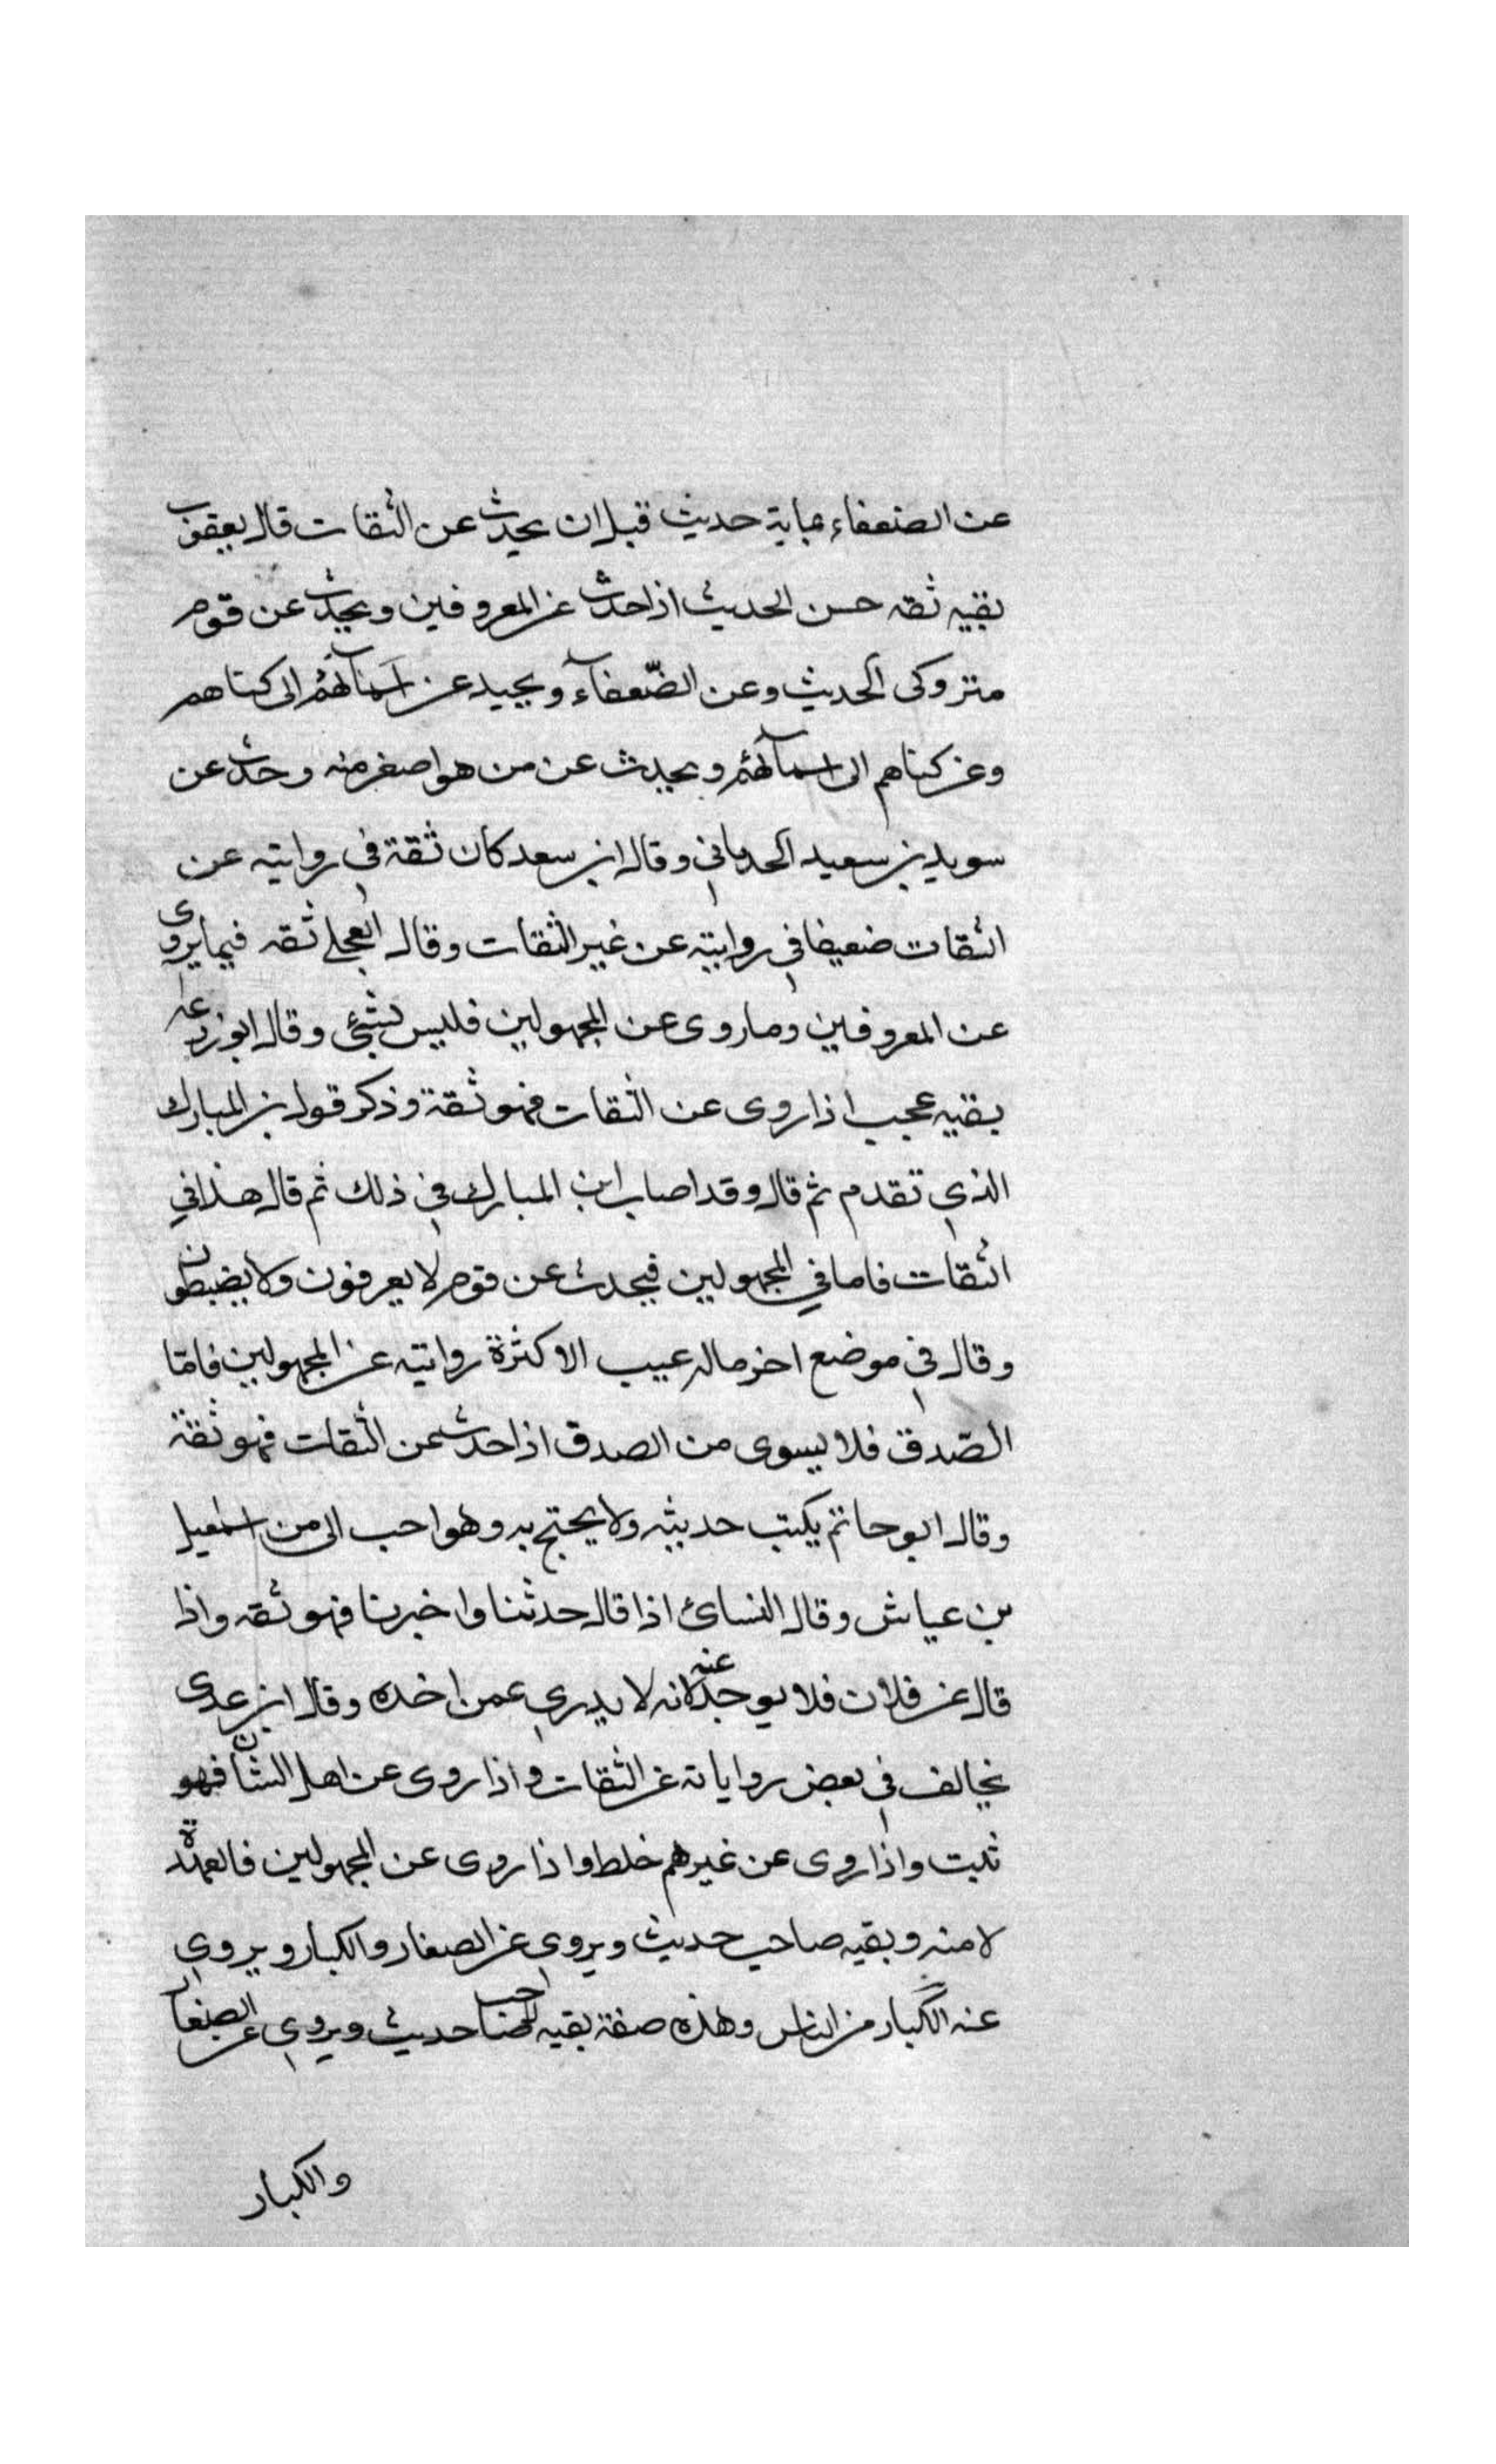 عن الضعفاء بماية حديث قبل ان يحدث عن الثقات قال يعقوب
بقيه ثقه حسن الحديث اذا حدث عن المعروفين ويحدث عن قوم
متروكى الحديث وعن الضّعفآء ويحيد عن اسمآئهم الى كناهم
وعن كناهم الى اسمآئهم ويحدث عن من هو اصغر منه وحدث عن
سويد بن سعيد الحدثاني وقال ابن سعد كان ثقة في روايته عن
الثقات ضعيفا في روايته عن غير الثقات وقال العجلي ثقه فيما يروى
عن المعروفين وما روى عن المجهولين فليس بشيء وقال ابو زرعه
بقيه عجب اذا روى عن الثقات فهو ثقة وذكر قول بن المبارك
الذي تقدم ثم قال وقد اصاب ابن المبارك في ذلك ثم قال هذا في
الثقات فاما في المجهولين فيحدث عن قوم لا يعرفون ولا يضبطون
وقال في موضع اخر ماله عيب الا كثرة روايته عن المجهولين فامّا
الصّدق فلا يسوى من الصدق اذا حدث عن الثقات فهو ثقة
وقال ابو حاتم يكتب حديثه ولا يحتج به وهو احب الى من اسمعيل
بن عياش وقال النسائ اذا قال حدثنا واخبرنا فهو ثقه واذا
قال عن فلان فلا يوخذ عنه لانه لا يدري عمن اخذه وقال ابن عدى
يخالف في بعض رواياته عن الثقات واذا روى عن اهل الشام فهو
ثبت واذا روى عن غيرهم خلط واذا روى عن المجهولين فالعهدة
لا منه وبقيه صاحب حديث ويروي عن الصغار والكبار ويروي
عنه الكبار من الناس وهذه صفة بقيه صاحب حديث ويروي عن الصغار
والكبار